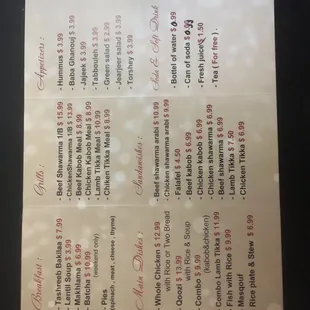 Appetizers :
- Hummus $ 3.99
- Baba Ghanouj $ 3.99
- Jajeek $ 3.99
- Tabbouleh $ 3.99
- Green salad $ 2.99
- Jearjeer salad $ 3.99
- Torshey $ 3.99
Soda & Soft Drink
- Bottel of water $ 0.99
- Can of soda $ 0.99
- Fresh juice $ 1.50
- Tea ( For free ) .
Grills :
- Beef Shawarma 1/B $ 15.99
- ChickenShawarma 1/B $ 13.99
- Beef Kabob Meal $ 9.99
- Chicken Kabob Meal $ 8.99
- Lamb Tikka Meal $ 10.99
- Chiken Tikka Meal $ 8.99
Sandwishes :
- Beef shawarma arabi $ 10.99
- Chicken shawarma arabi $ 9.99
- Falafel $ 4.50
- Beef kabob $ 6.99
- Chicken kabob $ 6.99
- Chicken shawarma $ 6.99
- Beef shawarma $ 6.99
- Lamb Tikka $ 7.50
- Chicken Tikka $ 6.99
Breakfast :
- Tashreeb Bakilaa $ 7.99
- Lentil Soup $ 3.99
- Makhlama $ 6.99
- Batcha $ 10.99
(weekend only)
- Pies
(spinach , meat , cheese , thyme)
Main Dishes :
- Whole Chicken $ 12.99
with Rice or Two Bread
- Qoozi $ 13.99
with Rice & Soup
- Combo $ 9.99
(kabob&chicken)
- Combo Lamb Tikka $ 11.99
- Fish with Rice $ 9.99
- Masqouf
- Rice plate & Stew $ 6.99